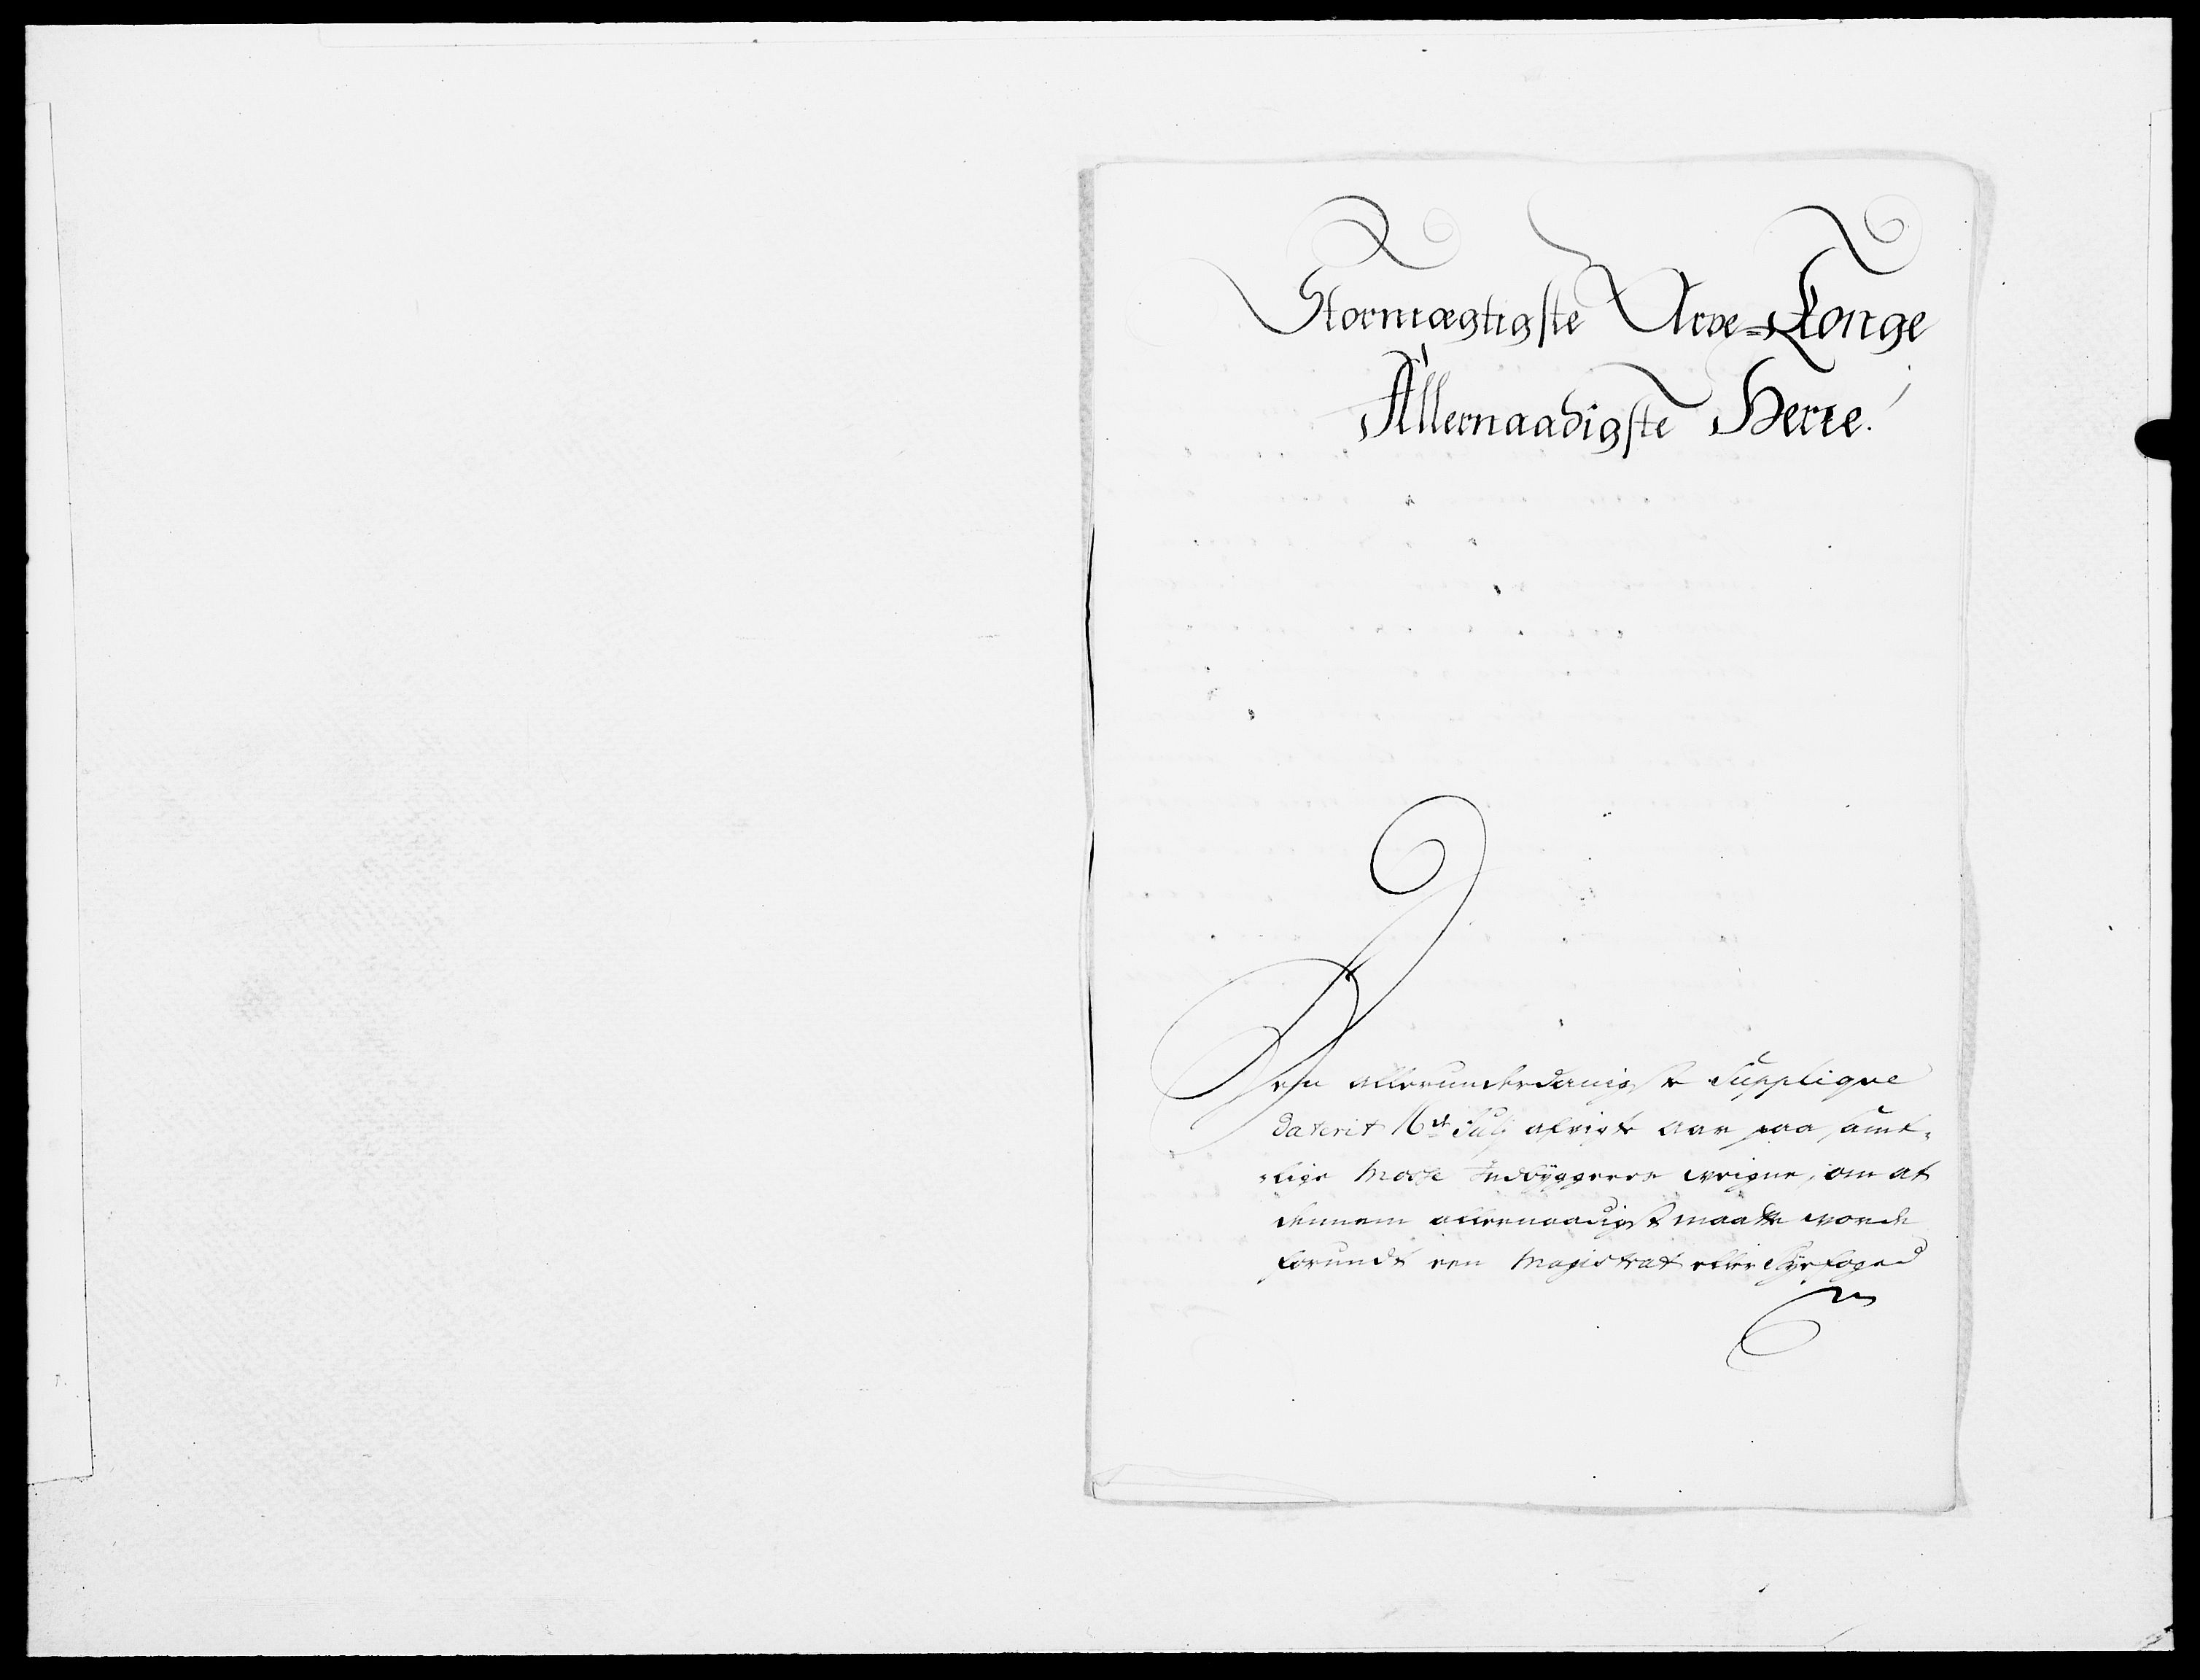 Stormægtigste Arve=Konge
Allernaadigste Herre!
Den allerunderdanigste Supplique
daterit 16de Julj afvigte Aar paa samt-
-lige Mosse Indbyggeres veigne, om at
dennem allernaadigst maatte vorde
forundt een Magistrat eller Byefoged